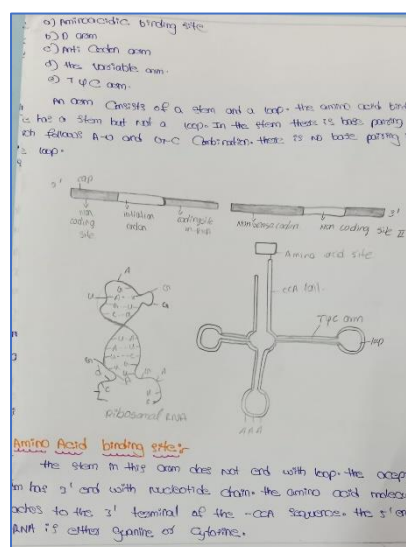 a) Aminoacidic binding site
b) D arm
c) Anti Codon arm
d) the variable arm.
e) TψC arm.
An arm Consists of a stem and a loop. the amino acid bind
is has a stem but not a loop. In the stem there is base pairing
ich follows A-U and G-C Combination. there is no base pairing
s loop.
5' cap 3'
non coding site
initiation codon
coding site
Non coding site II
Amino acid site
CCA tail
TψC arm
loop
AAA
Ribosomal RNA
Amino Acid binding site:-
the stem in this arm does not end with loop. the accep
m has 3' end with nucleotide chain. the amino acid molecu
aches to the 3' terminal of the -CCA Sequence. the 5' en
RNA is either guanine or Cytosine.